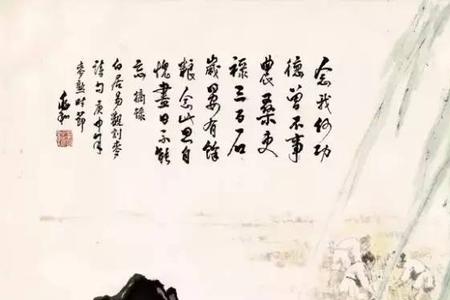 念我何功
德曾不事
農桑吏
祿三百石
歲晏有餘
糧念此私自
愧盡日不能
忘 摘錄
白居易觀刈麥
詩句庚申年
麥熟時節